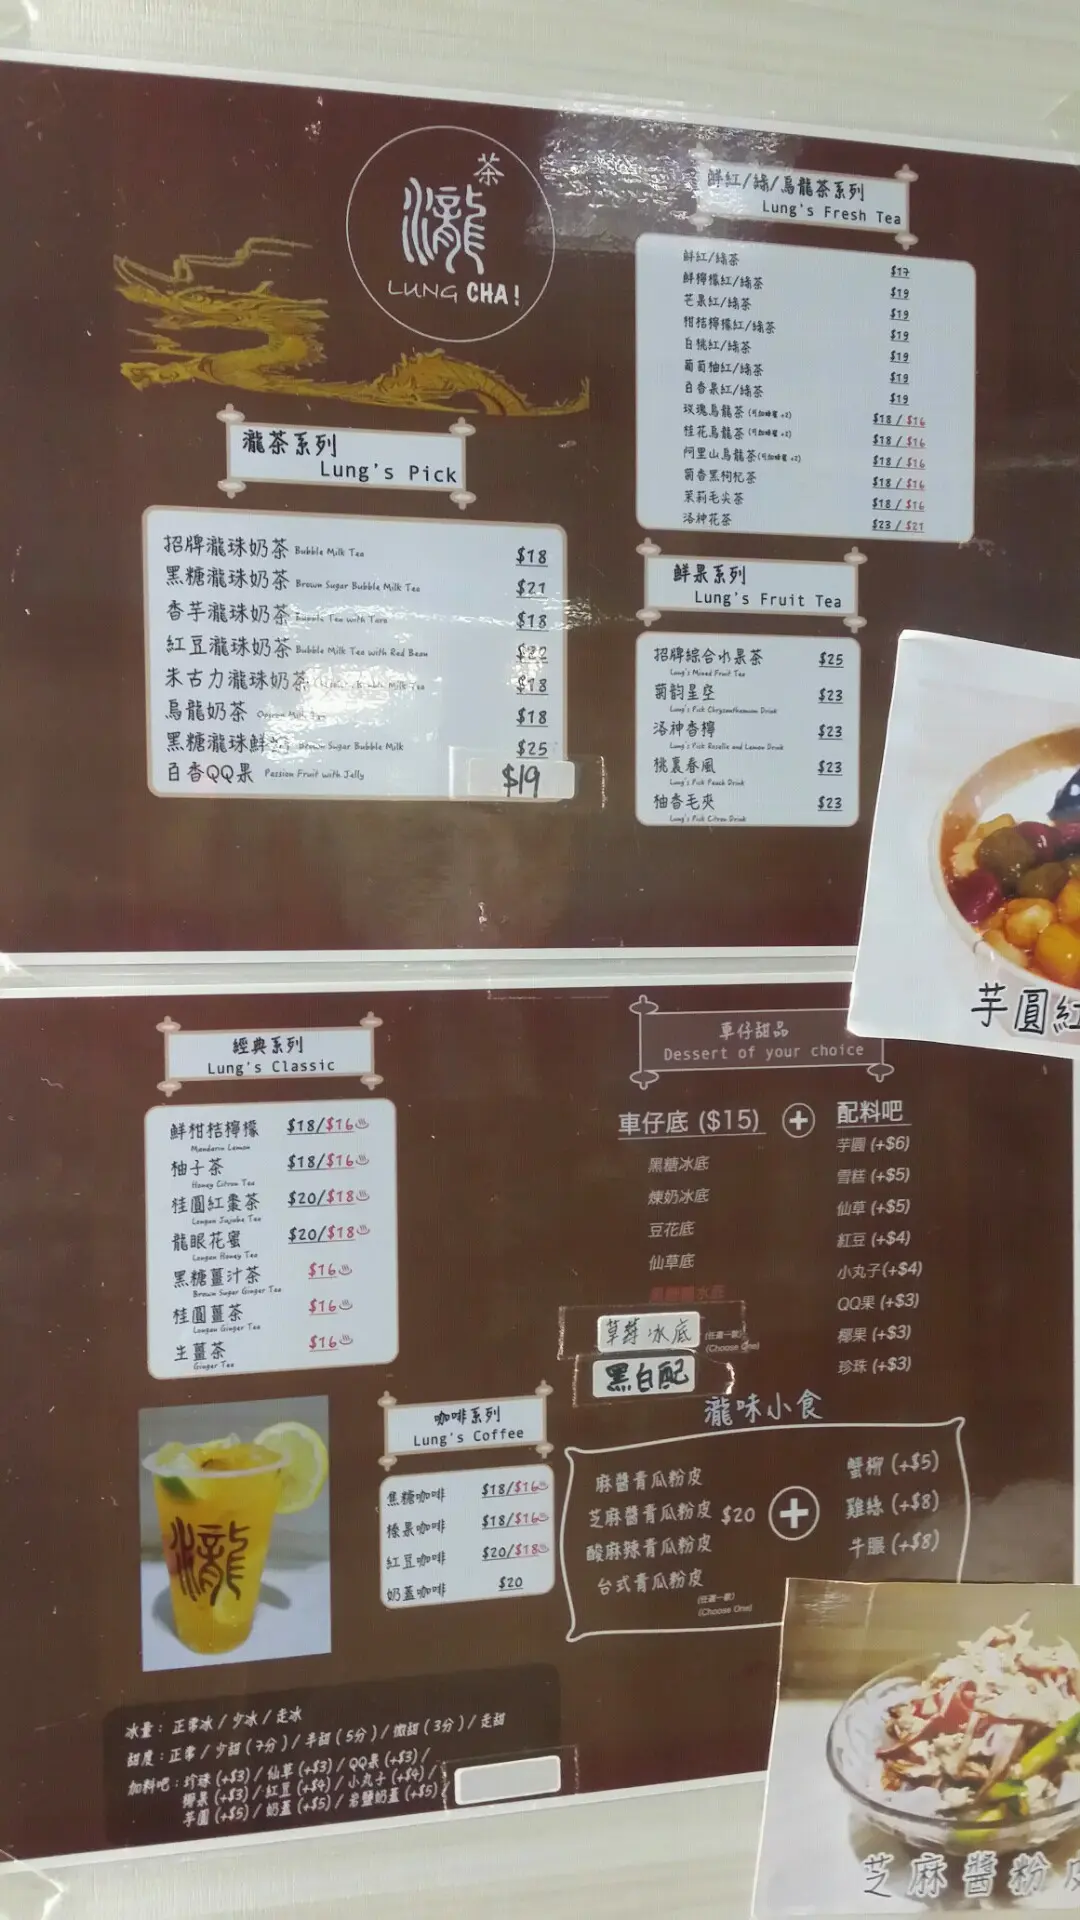 茶
瀧
LUNG CHA!
瀧茶系列
Lung's Pick
招牌瀧珠奶茶 Bubble Milk Tea $18
黑糖瀧珠奶茶 Brown Sugar Bubble Milk Tea $21
香芋瀧珠奶茶 Bubble Tea with Taro $18
紅豆瀧珠奶茶 Bubble Milk Tea with Red Bean $22
朱古力瀧珠奶茶 Bubble Milk Tea $18
烏龍奶茶 Milk Tea $18
黑糖瀧珠鮮 Brown Sugar Bubble Milk $25
百香QQ果 Passion Fruit with Jelly $19
鮮紅/綠/烏龍茶系列
Lung's Fresh Tea
鮮紅/綠茶 $17
鮮檸檬紅/綠茶 $19
芒果紅/綠茶 $19
柑桔檸檬紅/綠茶 $19
白桃紅/綠茶 $19
葡萄柚紅/綠茶 $19
百香果紅/綠茶 $19
玫瑰烏龍茶 (可加蜂蜜 +2) $18 / $16
桂花烏龍茶 (可加蜂蜜 +2) $18 / $16
阿里山烏龍茶 (可加蜂蜜 +2) $18 / $16
菊香黑枸杞茶 $18 / $16
茉莉毛尖茶 $18 / $16
洛神花茶 $23 / $21
鮮果系列
Lung's Fruit Tea
招牌綜合水果茶 $25
Lung's Mixed Fruit Tea
菊韵星空 $23
Lung's Pick Chrysanthemum Drink
洛神香檸 $23
Lung's Pick Roselle and Lemon Drink
桃裏春風 $23
Lung's Pick Peach Drink
柚香毛夾 $23
Lung's Pick Citron Drink
芋圓紅
經典系列
Lung's Classic
鮮柑桔檸檬 $18/$16
Mandarin Lemon
柚子茶 $18/$16
Honey Citron Tea
桂圓紅棗茶 $20/$18
Longan Jujube Tea
龍眼花蜜 $20/$18
Longan Honey Tea
黑糖薑汁茶 $16
Brown Sugar Ginger Tea
桂圓薑茶 $16
Longan Ginger Tea
生薑茶 $16
Ginger Tea
車仔甜品
Dessert of your choice
車仔底 ($15) + 配料吧
黑糖冰底
煉奶冰底
豆花底
仙草底
草莓冰底
(任選一款)
(Choose One)
黑白配
芋圓 (+$6)
雪糕 (+$5)
仙草 (+$5)
紅豆 (+$4)
小丸子(+$4)
QQ果 (+$3)
椰果 (+$3)
珍珠 (+$3)
瀧
咖啡系列
Lung's Coffee
焦糖咖啡 $18/$16
榛果咖啡 $18/$16
紅豆咖啡 $20/$18
奶蓋咖啡 $20
瀧味小食
麻醬青瓜粉皮
芝麻醬青瓜粉皮 $20
酸麻辣青瓜粉皮
台式青瓜粉皮
(任選一款)
(Choose One)
+
蟹柳 (+$5)
雞絲 (+$8)
牛𦟌 (+$8)
冰量：正常冰 / 少冰 / 走冰
甜度：正常 / 少甜 (7分) / 半甜 (5分) / 微甜 (3分) / 走甜
加料吧：珍珠 (+$3) / 仙草 (+$3) / QQ果 (+$3) /
椰果 (+$3) / 紅豆 (+$4) / 小丸子 (+$4) /
芋圓 (+$5) / 奶蓋 (+$5) / 岩鹽奶蓋 (+$5)
芝麻醬粉皮